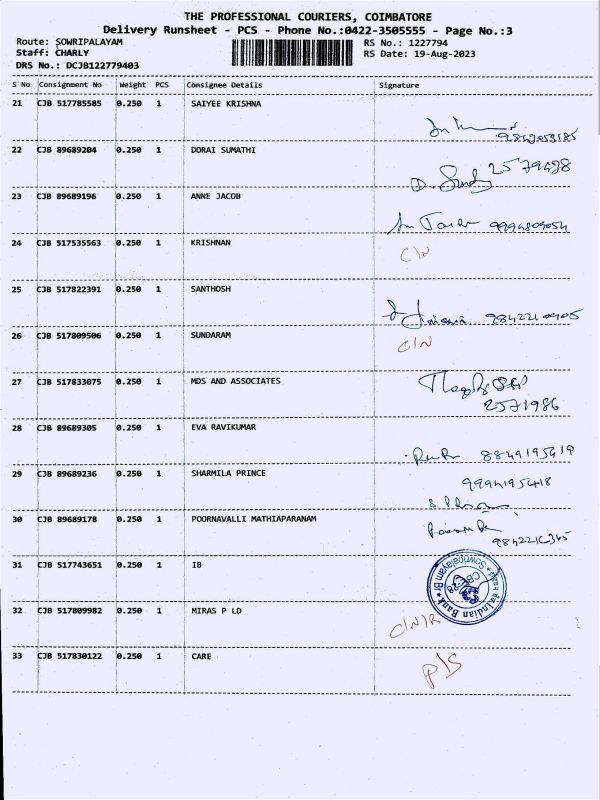 THE PROFESSIONAL COURIERS, COIMBATORE
Delivery Runsheet - PCS - Phone No.:0422-3505555 - Page No.:3
Route: SOWRIPALAYAM
RS No.: 1227794
Staff: CHARLY
RS Date: 19-Aug-2023
DRS No.: DCJB122779403
S No Consignment No Weight PCS Consignee Details Signature
21 CJB 517785585 0.250 1 SAIYEE KRISHNA
22 CJB 89689204 0.250 1 DORAI SUMATHI
23 CJB 89689196 0.250 1 ANNE JACOB
24 CJB 517535563 0.250 1 KRISHNAN C/N
25 CJB 517822391 0.250 1 SANTHOSH
26 CJB 517809506 0.250 1 SUNDARAM C/N
27 CJB 517833075 0.250 1 MDS AND ASSOCIATES
2571986
28 CJB 89689305 0.250 1 EVA RAVIKUMAR
29 CJB 89689236 0.250 1 SHARMILA PRINCE
9994195418
30 CJB 89689178 0.250 1 POORNAVALLI MATHIAPARANAM
31 CJB 517743651 0.250 1 IB
Indian Bank
Sowripalayam Br
32 CJB 517809982 0.250 1 MIRAS P LD C/N/R
33 CJB 517830122 0.250 1 CARE P/S